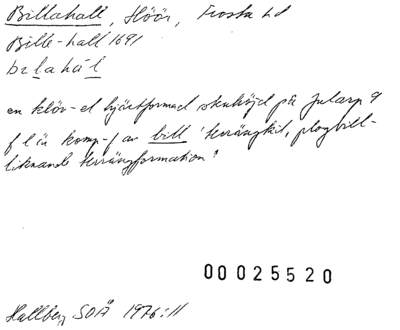 Billahall, Höör, Frosta hd
Bille-hall 1691
bɛlahál
en klöv- el hjärtformad skuhöjd på Jularp 9
f l är komp-f av bill 'terrängkil, plogbill-
liknande terrängformation'
00025520
Hallberg SOÅ 1976:11